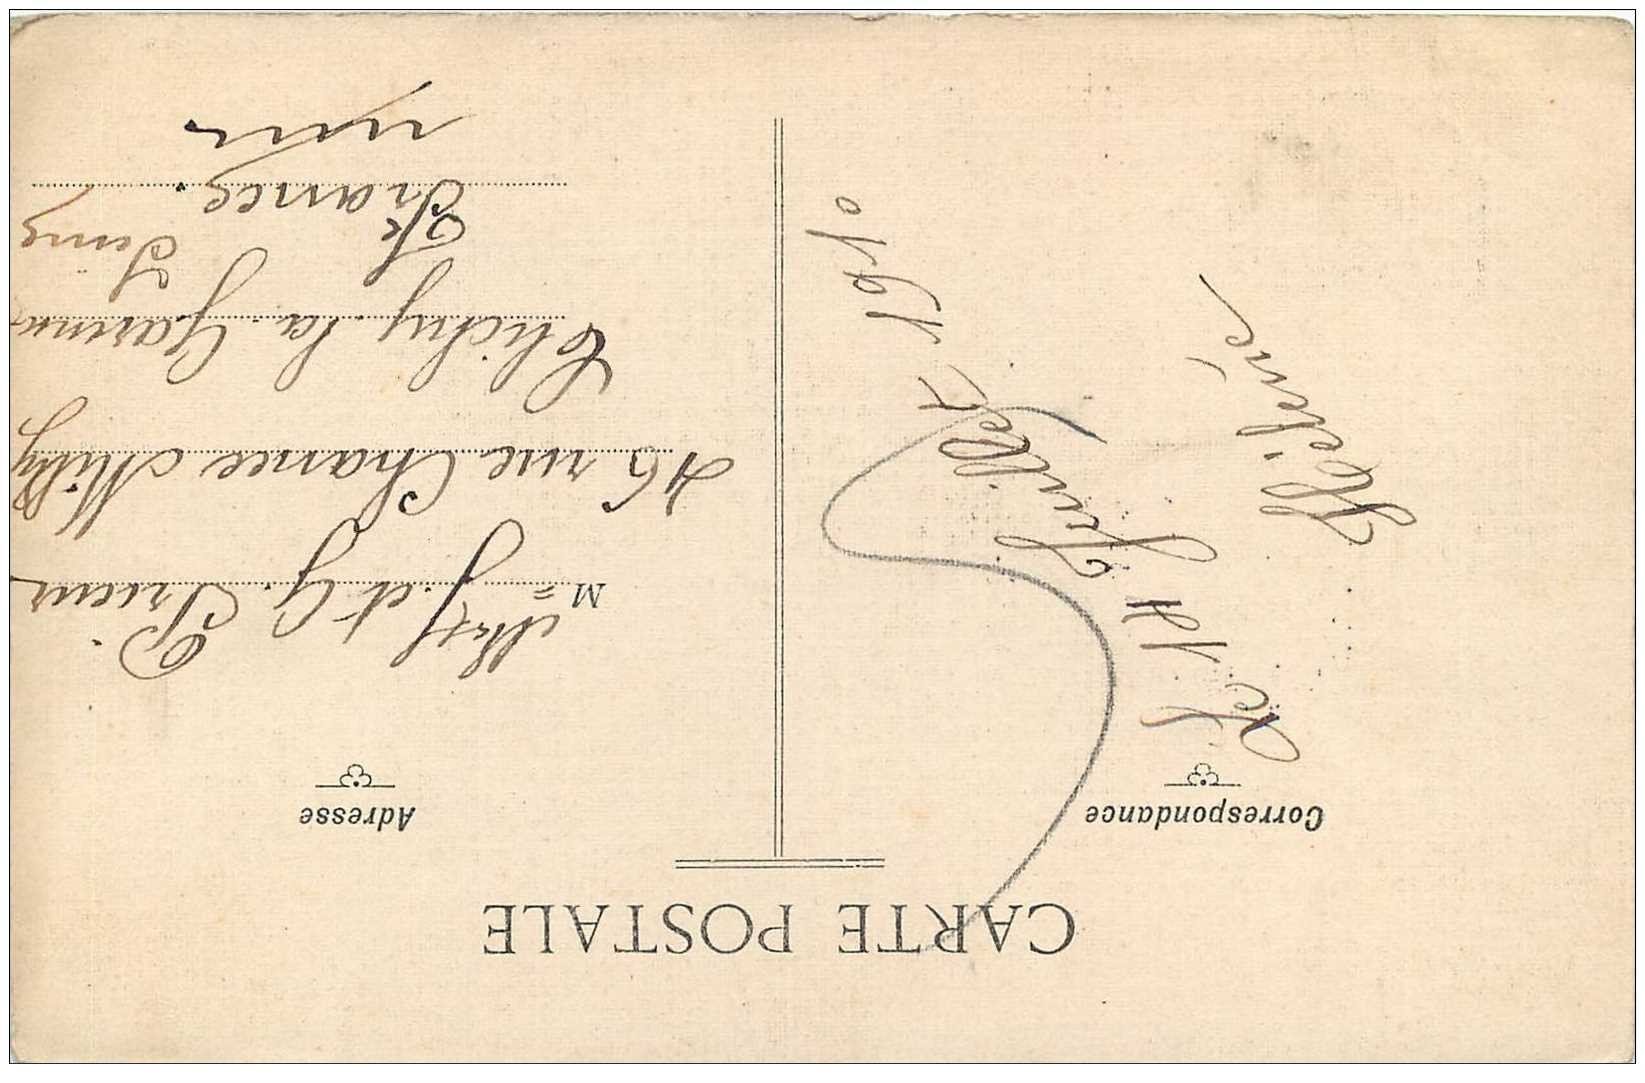 CARTE POSTALE
Correspondance
Le 12 Juillet 1910
Adresse
M
J. et G. Prieur
46 rue Chance Milly
Clichy la Garenne
Seine
France